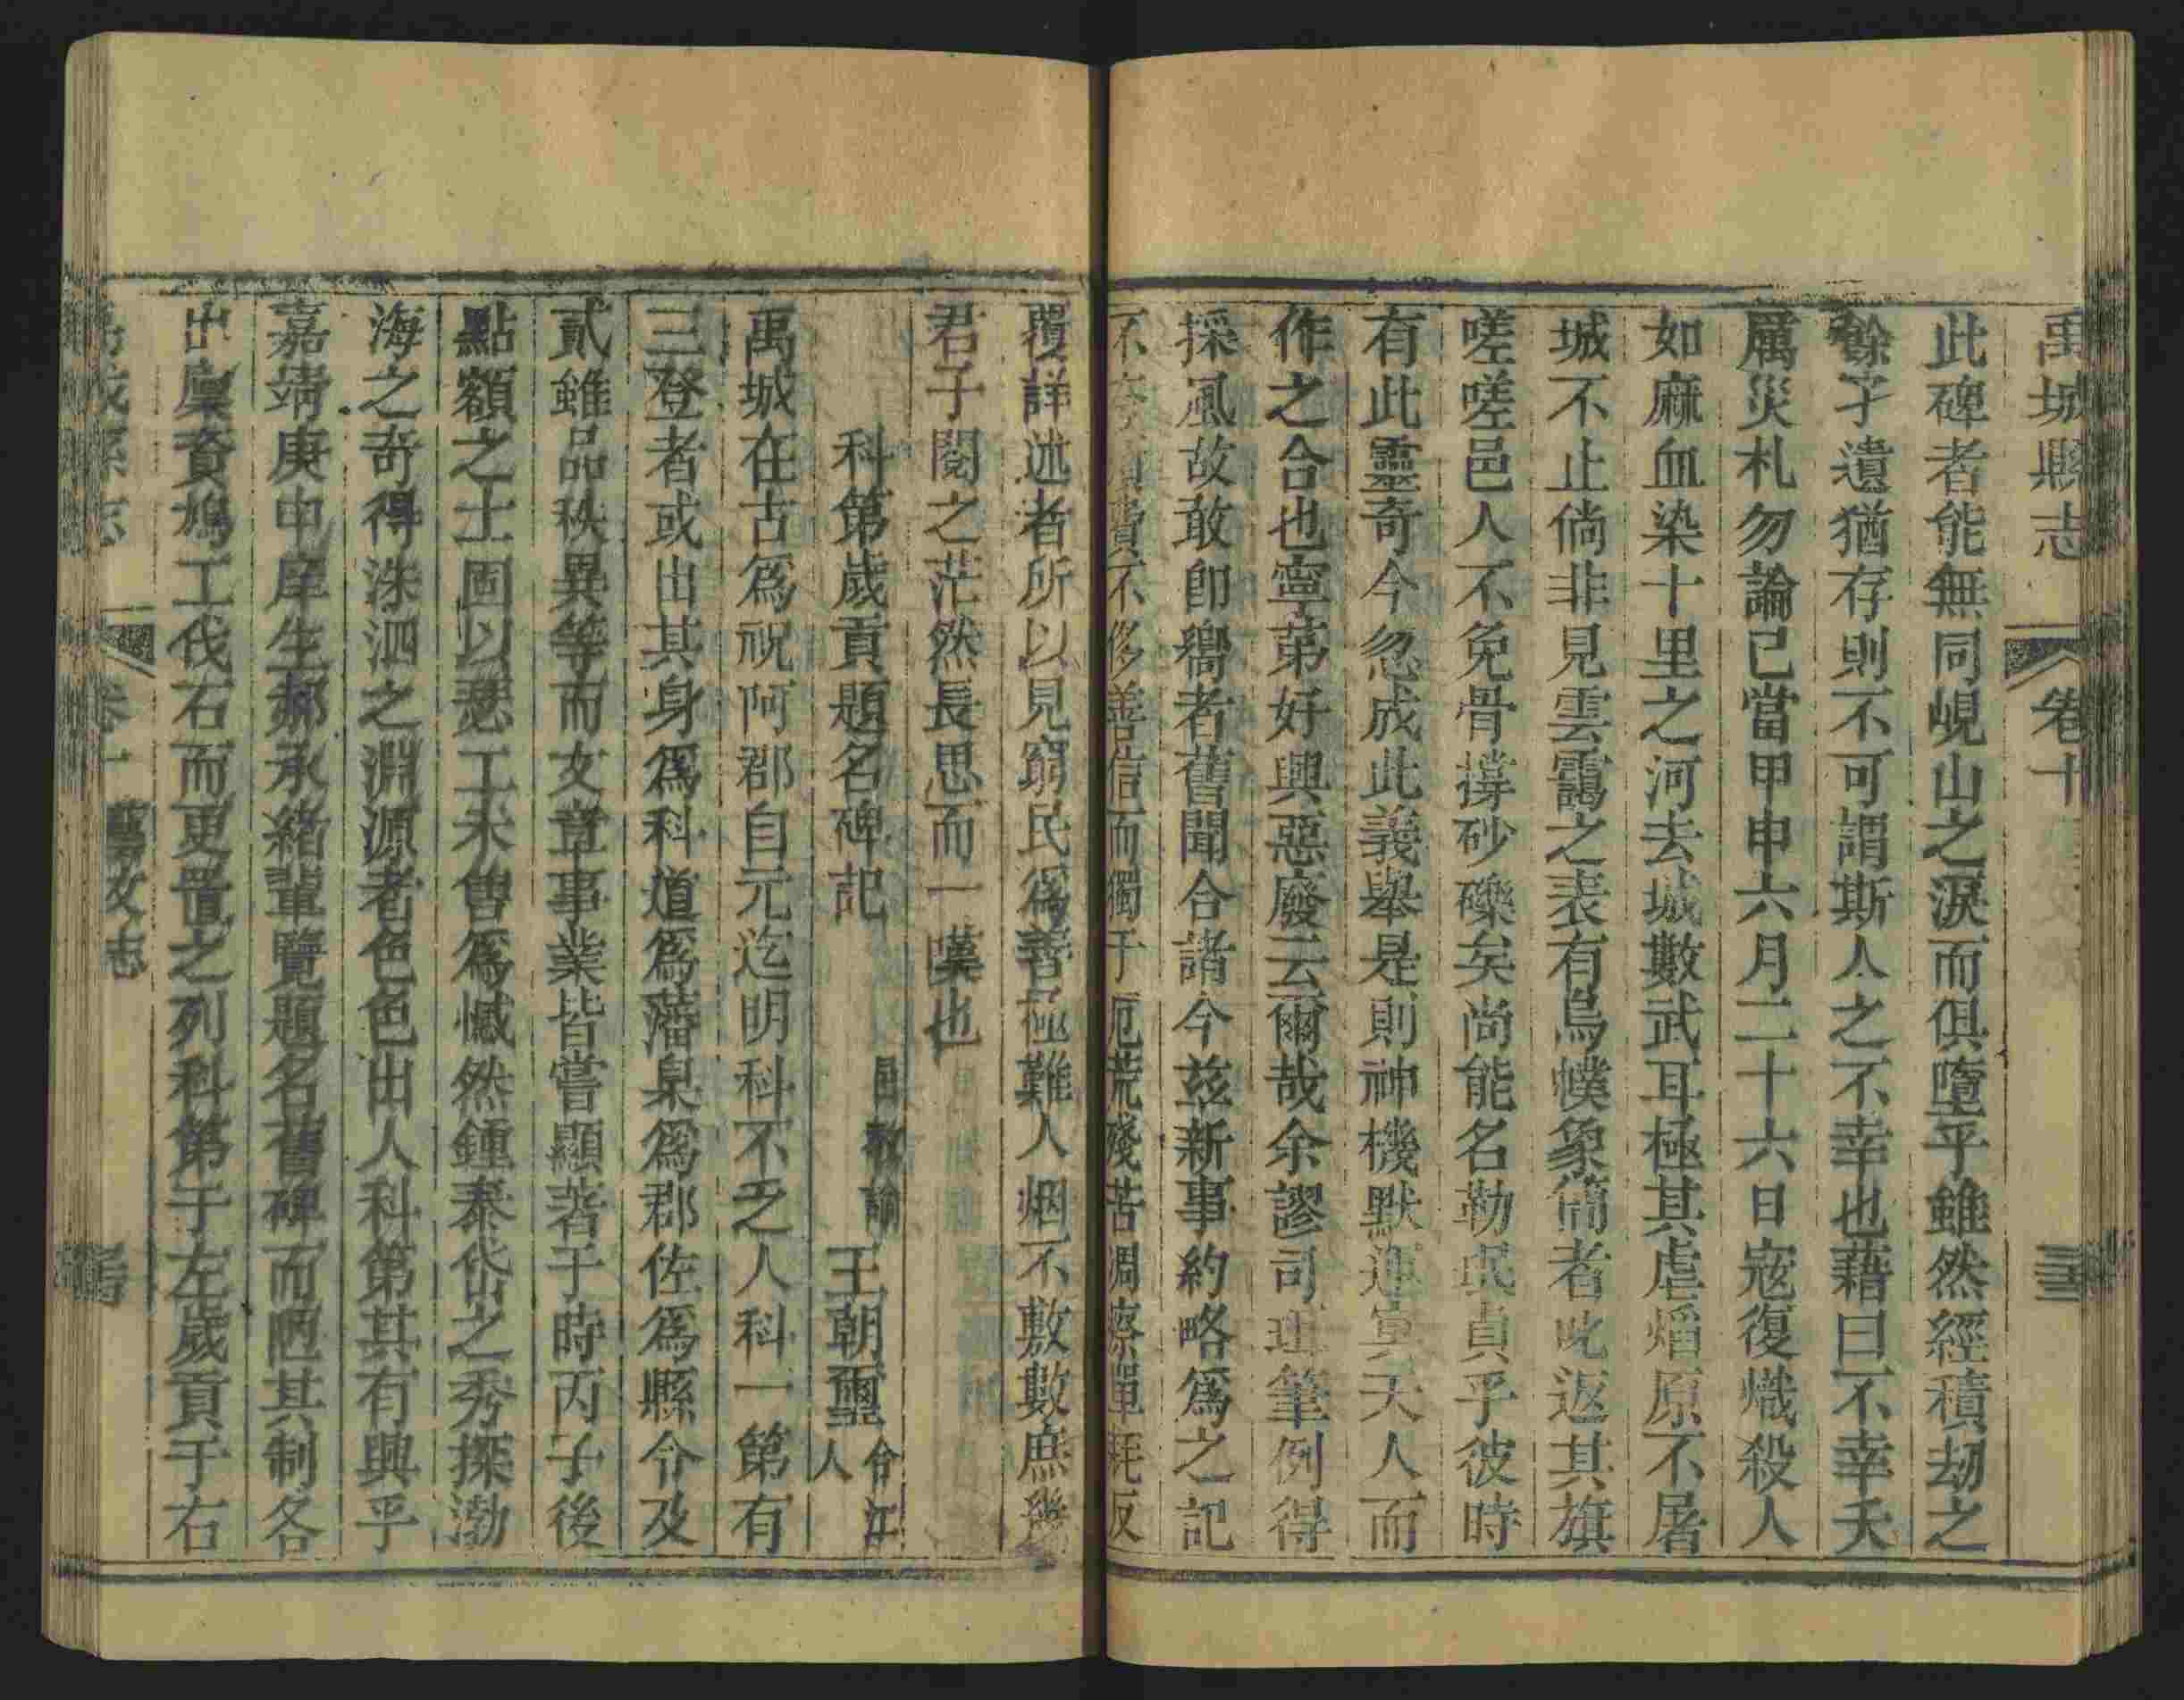 禹城縣志 卷十
此碑者能無同峴山之淚而俱墮乎雖然經積劫之
餘孑遺猶存則不可謂斯人之不幸也藉曰不幸天
厲災札勿論已當甲申六月二十六日寇復熾殺人
如麻血染十里之河去城數武耳極其虐熖原不屠
城不止倘非見雲靄之表有烏幞象簡者叱返其旗
嗟嗟邑人不免骨撐砂礫矣尚能名勒珉貞乎彼時
有此靈奇今忽成此義舉是則神機默運寘天人而
作之合也寧第好興惡廢云爾哉余謬司筆例得
採風故敢卽嚮者舊聞合諸今兹新事約略爲之記
不費不侈善信而獨于厄荒殘苦凋瘵單耗反
覆詳述者所以見窮民爲善極難人烟不敷數庶幾
君子閱之茫然長思而一嘆也
科第歲貢題名碑記 邑教諭 王朝璽 合江人
禹城在古爲祝阿郡自元迄明科不乏人科一第有
三登者或出其身爲科道爲藩臬爲郡佐爲縣令及
貳雖品秩異等而文章事業皆嘗顯著于時丙子後
點額之士固以瑟工未售爲憾然鍾泰岱之秀探渤
海之奇得洙泗之淵源者色色出人科第其有興乎
嘉靖庚申庠生郝承緒輩覽題名舊碑而陋其制各
出廩資鳩工伐石而更置之列科第于左歲貢于右
卷十 藝文志